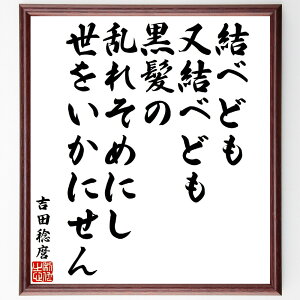 結べども
又結べども
黒髪の
乱れそめにし
世をいかにせん
吉田稔麿